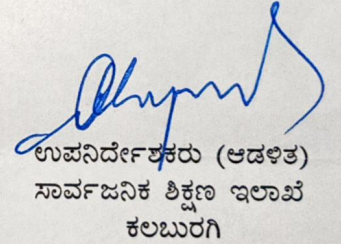 ಉಪನಿರ್ದೇಶಕರು (ಆಡಳಿತ)
ಸಾರ್ವಜನಿಕ ಶಿಕ್ಷಣ ಇಲಾಖೆ
ಕಲಬುರಗಿ